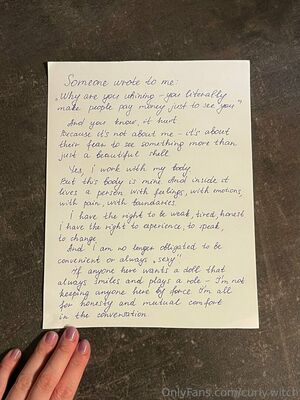 Someone wrote to me:
„Why are you whining - you literally
make people pay money just to see you"
And you know, it hurt
Because it's not about me - it's about
their fear to see something more than
just a beautiful shell
Yes, I work with my body
But this body is mine. And inside it
lives a person with feelings, with emotions,
with pain, with boundaries.
I have the right to be weak, tired, honest
I have the right to experience, to speak,
to change
And I am no longer obligated to be
convenient or always „sexy"
If anyone here wants a doll that
always smiles and plays a role - I'm not
keeping anyone here by force. I'm all
for honesty and mutual comfort
in the conversation.
OnlyFans.com/curly.witch